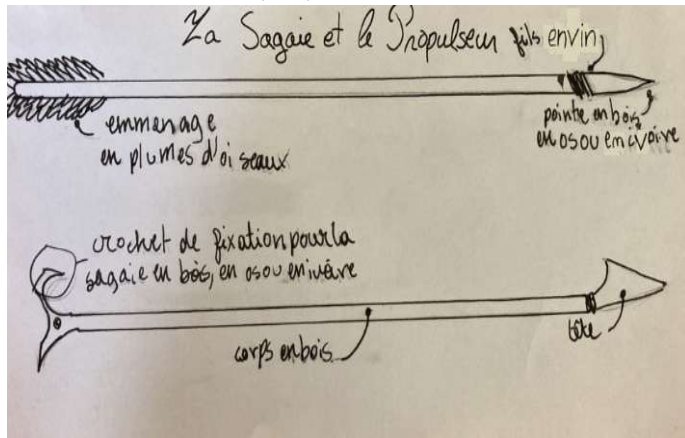 La Sagaie et le Propulseur
fils envin
emmenage
en plumes d'oiseaux
pointe en bois
en os ou em ivoire
crochet de fixation pour la
sagaie en bois, en os ou en ivoire
corps en bois
tête